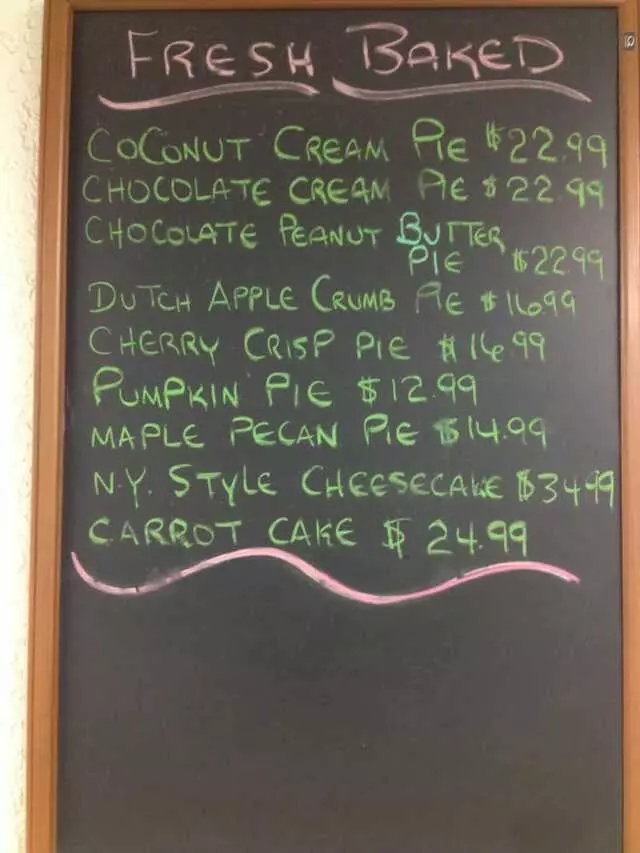 FRESH BAKED
COCONUT CREAM PIE $22.99
CHOCOLATE CREAM PIE $22.99
CHOCOLATE PEANUT BUTTER
PIE $22.99
DUTCH APPLE CRUMB PIE $16.99
CHERRY CRISP PIE $16.99
PUMPKIN PIE $12.99
MAPLE PECAN PIE $14.99
N.Y. STYLE CHEESECAKE $34.99
CARROT CAKE $24.99